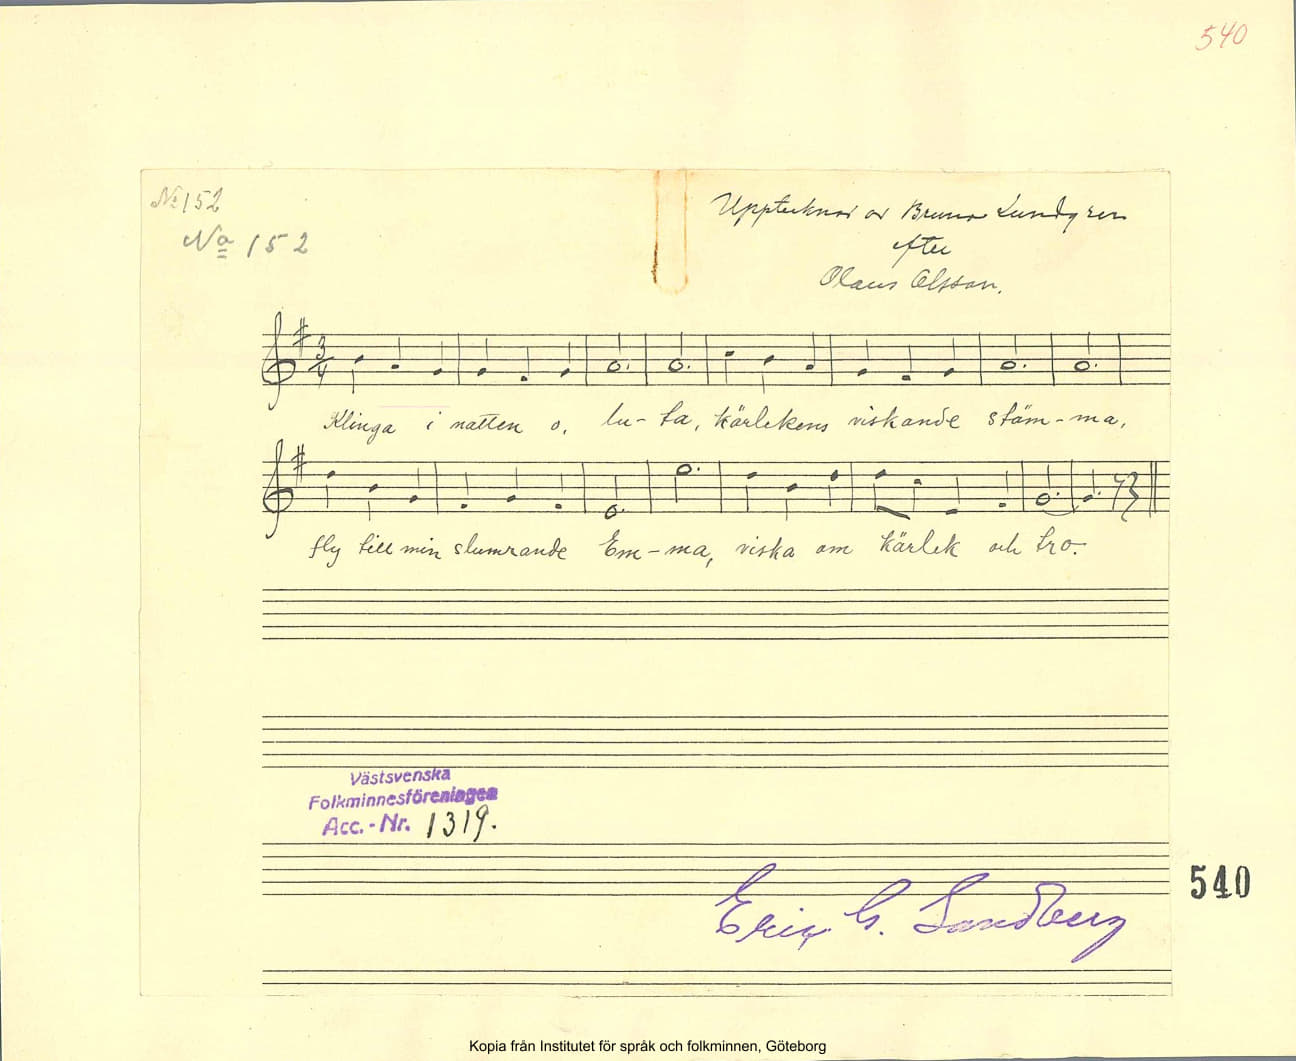 540
No 152
No 152
Upptecknad av Bruno Lundgren
efter
Olaus Olsson.
3
4
Klinga i natten o, lu-ta, kärlekens viskande stäm-ma,
fly till min slumrande Em-ma, viska om kärlek och tro.
Västsvenska
Folkminnesföreningen
Acc.-Nr. 1319.
540
Eric G. Sandberg
Kopia från Institutet för språk och folkminnen, Göteborg